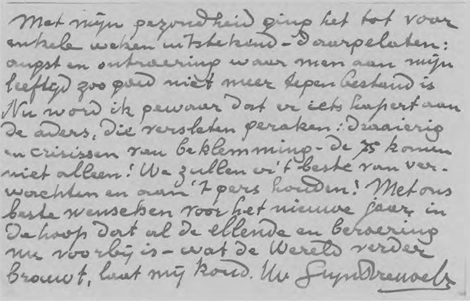 Met mijn gezondheid ging het tot voor
enkele weken uitstekend - daargelaten:
angst en ontroering waar men aan mijn
leeftijd zoo goed niet meer tegen bestand is
Nu word ik gewaar dat er iets hapert aan
de aders, die versleten geraken: draaierig
en crisissen van beklemming - de 75 komen
niet alleen! We zullen er 't beste van ver-
wachten en aan 't pers houden! Met ons
beste wenschen voor het nieuwe jaar, in
de hoop dat al de ellende en beroering
nu voorbij is - wat de Wereld verder
brouwt, laat mij koud. Uw Stijn Streuvels